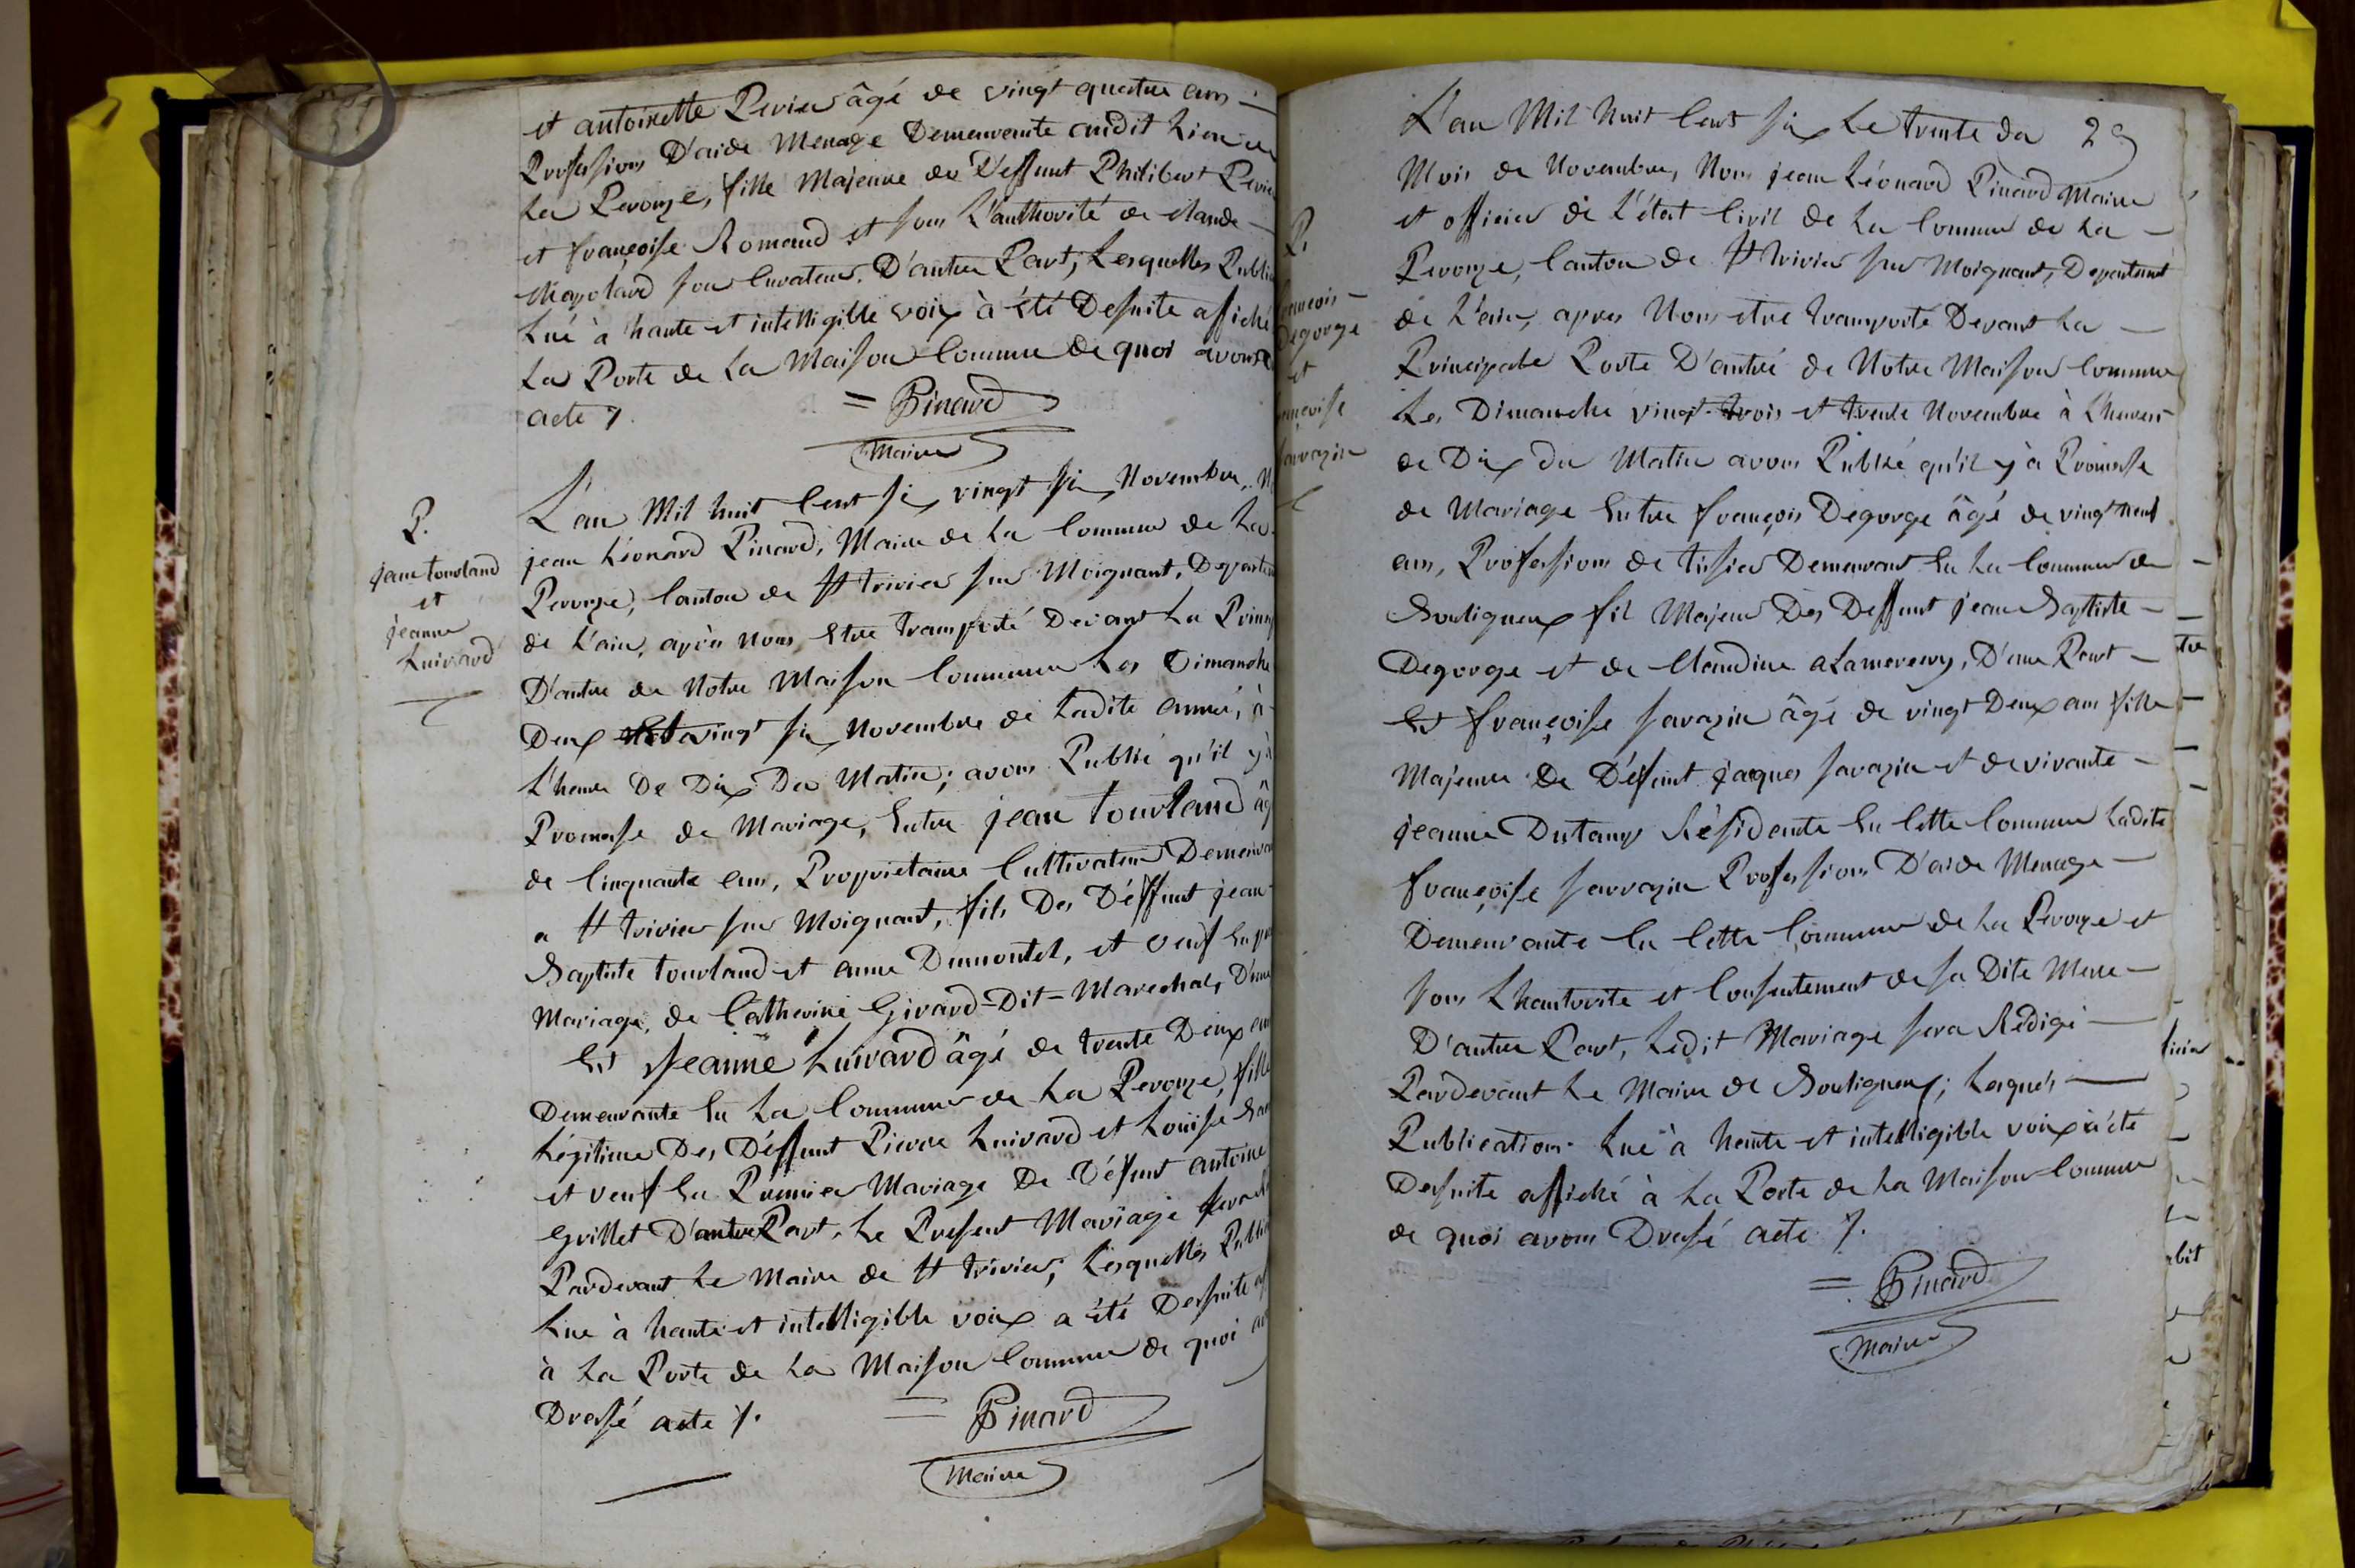 et antoinette Perier âgé de vingt quatre ans
Profession D'aide Menage Demeurante audit Lieu de
La Perouze, fille Majeure de Déffunt Philibert Perier
et françoise Romand et sous L'authorité de claude
son Curateur. D'autre Part, Lesquelles
Lué à haute et intelligible voix à été Desuite affiché
La Porte de La Maison Commune de quoi avons
acte /.
= Pinard
Maire
P.
jean tourland
et
jeanne
Luivard
L'an Mil huit Cent six vingt six Novembre,
jean Léonard Pinard, Maire de La Commune de La
Perouze, Canton de St trivier sur Moignant, Departem
de L'ain, après nous Etre transporté Devant La
D'antre de Notre Maison Commune Les Dimanche
Deux vingt six Novembre de Ladite année, à
L'heure De Dix Du Matin; avons Publié qu'il y a
Promesse de Mariage, Entre jean tourland âg
de Cinquante ans, Proprietaire Cultivateur Demeurant
a St trivier sur Moignant, fils Des Déffunt jean
Baptiste tourland et anne Dumontel, et veuf En
Mariage, de Catherine Girard-Dit-Marechal, D'une
Et Jeanne Luivard âgé de trente Deux ans
Demeurante En La Commune de La Perouze, fille
Légitime Des Déffunt Pierre Luivard et Louise
et veuf En Prémier Mariage De Défunt antoine
Grillet D'autre Part, Le Present Mariage sera
Pardevant Le Maire de St trivier, Lesquelles
Lue à haute et intelligible voix a été Desuite
à La Porte de La Maison Commune de quoi
Dressé acte /.
= Pinard
Maire
29
P.
Degorge
et
L'an Mil huit Cent six Le trente du
Mois de Novembre, Nous jean Léonard Pinard Maire
et officier de L'état Civil de La Commune de La
Perouze, Canton de St trivier sur Moignant, Departement
de L'ain, apres Nous etre transporté Devant La
Principale Porte D'antré de Notre Maison Commune
Les Dimanche vingt trois et trente Novembre à L'heures
de Dix du Matin avons Publié qu'il y à Promesse
de Mariage Entre françois Degorge âgé de vingt neuf
ans, Profession de tissier Demeurant En La Commune de
Bouligneux fil Majeur Des Deffunt jean Baptiste
Degorge et de Claudine D'une Part
Et françoise sarazin âgé de vingt Deux ans fille
Majeure De Défunt jaques sarazin et de vivante
jeanne Dutang Résidente En Cette Commune Ladite
françoise sarrazin Profession D'aide Menage
Demeurante En Cette Commune de La Perouze et
sous L'hautorite et Consentement de sa Dite Mere
D'autre Part, Ledit Mariage sera Rédigé
Pardevant Le Maire de Bouligneux; Lesquels
Publication Lué à haute et intelligible voix à été
Desuite affiché à La Porte de La Maison Commune
de quoi avons Dressé acte /.
= Pinard
Maire